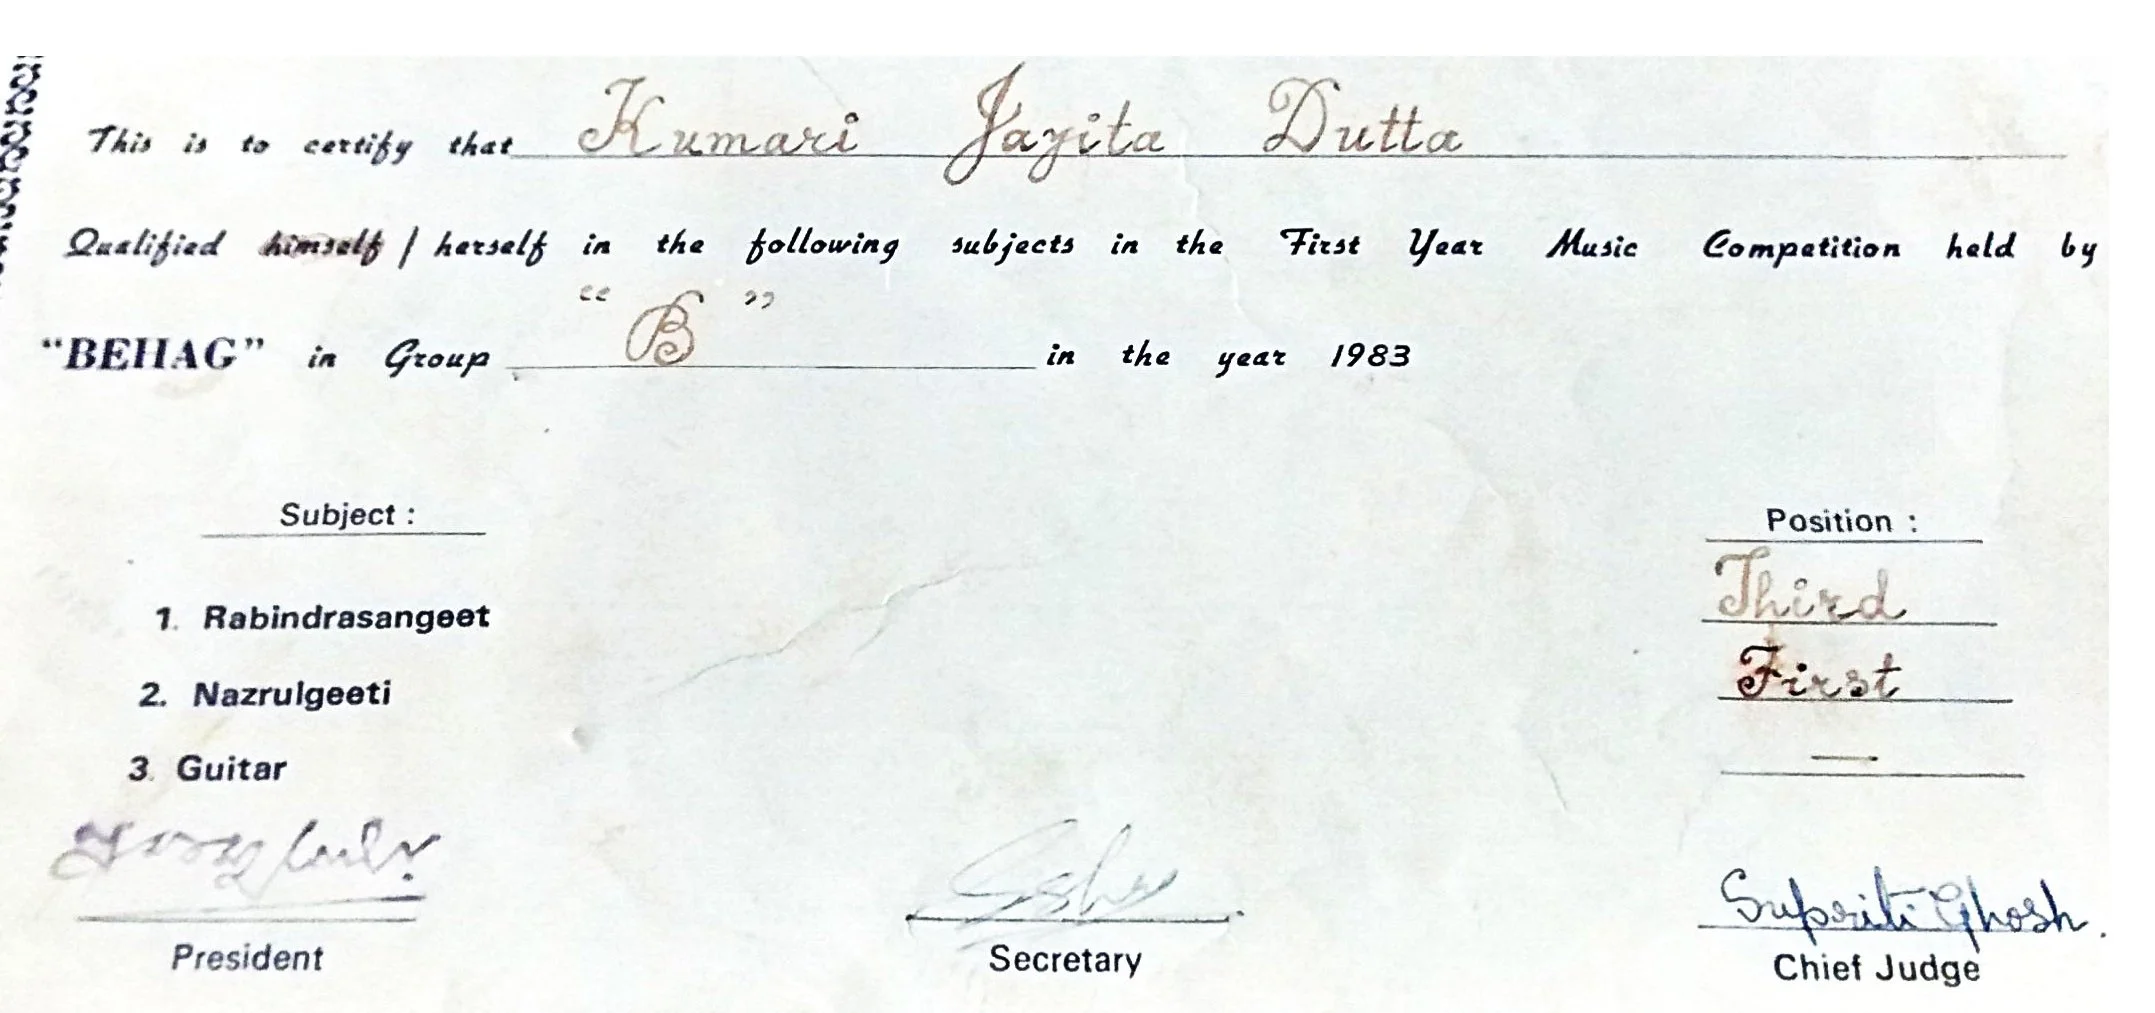 This is to certify that Kumari Jayita Dutta
Qualified himself / herself in the following subjects in the First Year Music Competition held by
"BEHAG" in Group "B" in the year 1983
Subject : Position :
1. Rabindrasangeet Third
2. Nazrulgeeti First
3. Guitar —
Supriti Ghosh.
President Secretary Chief Judge